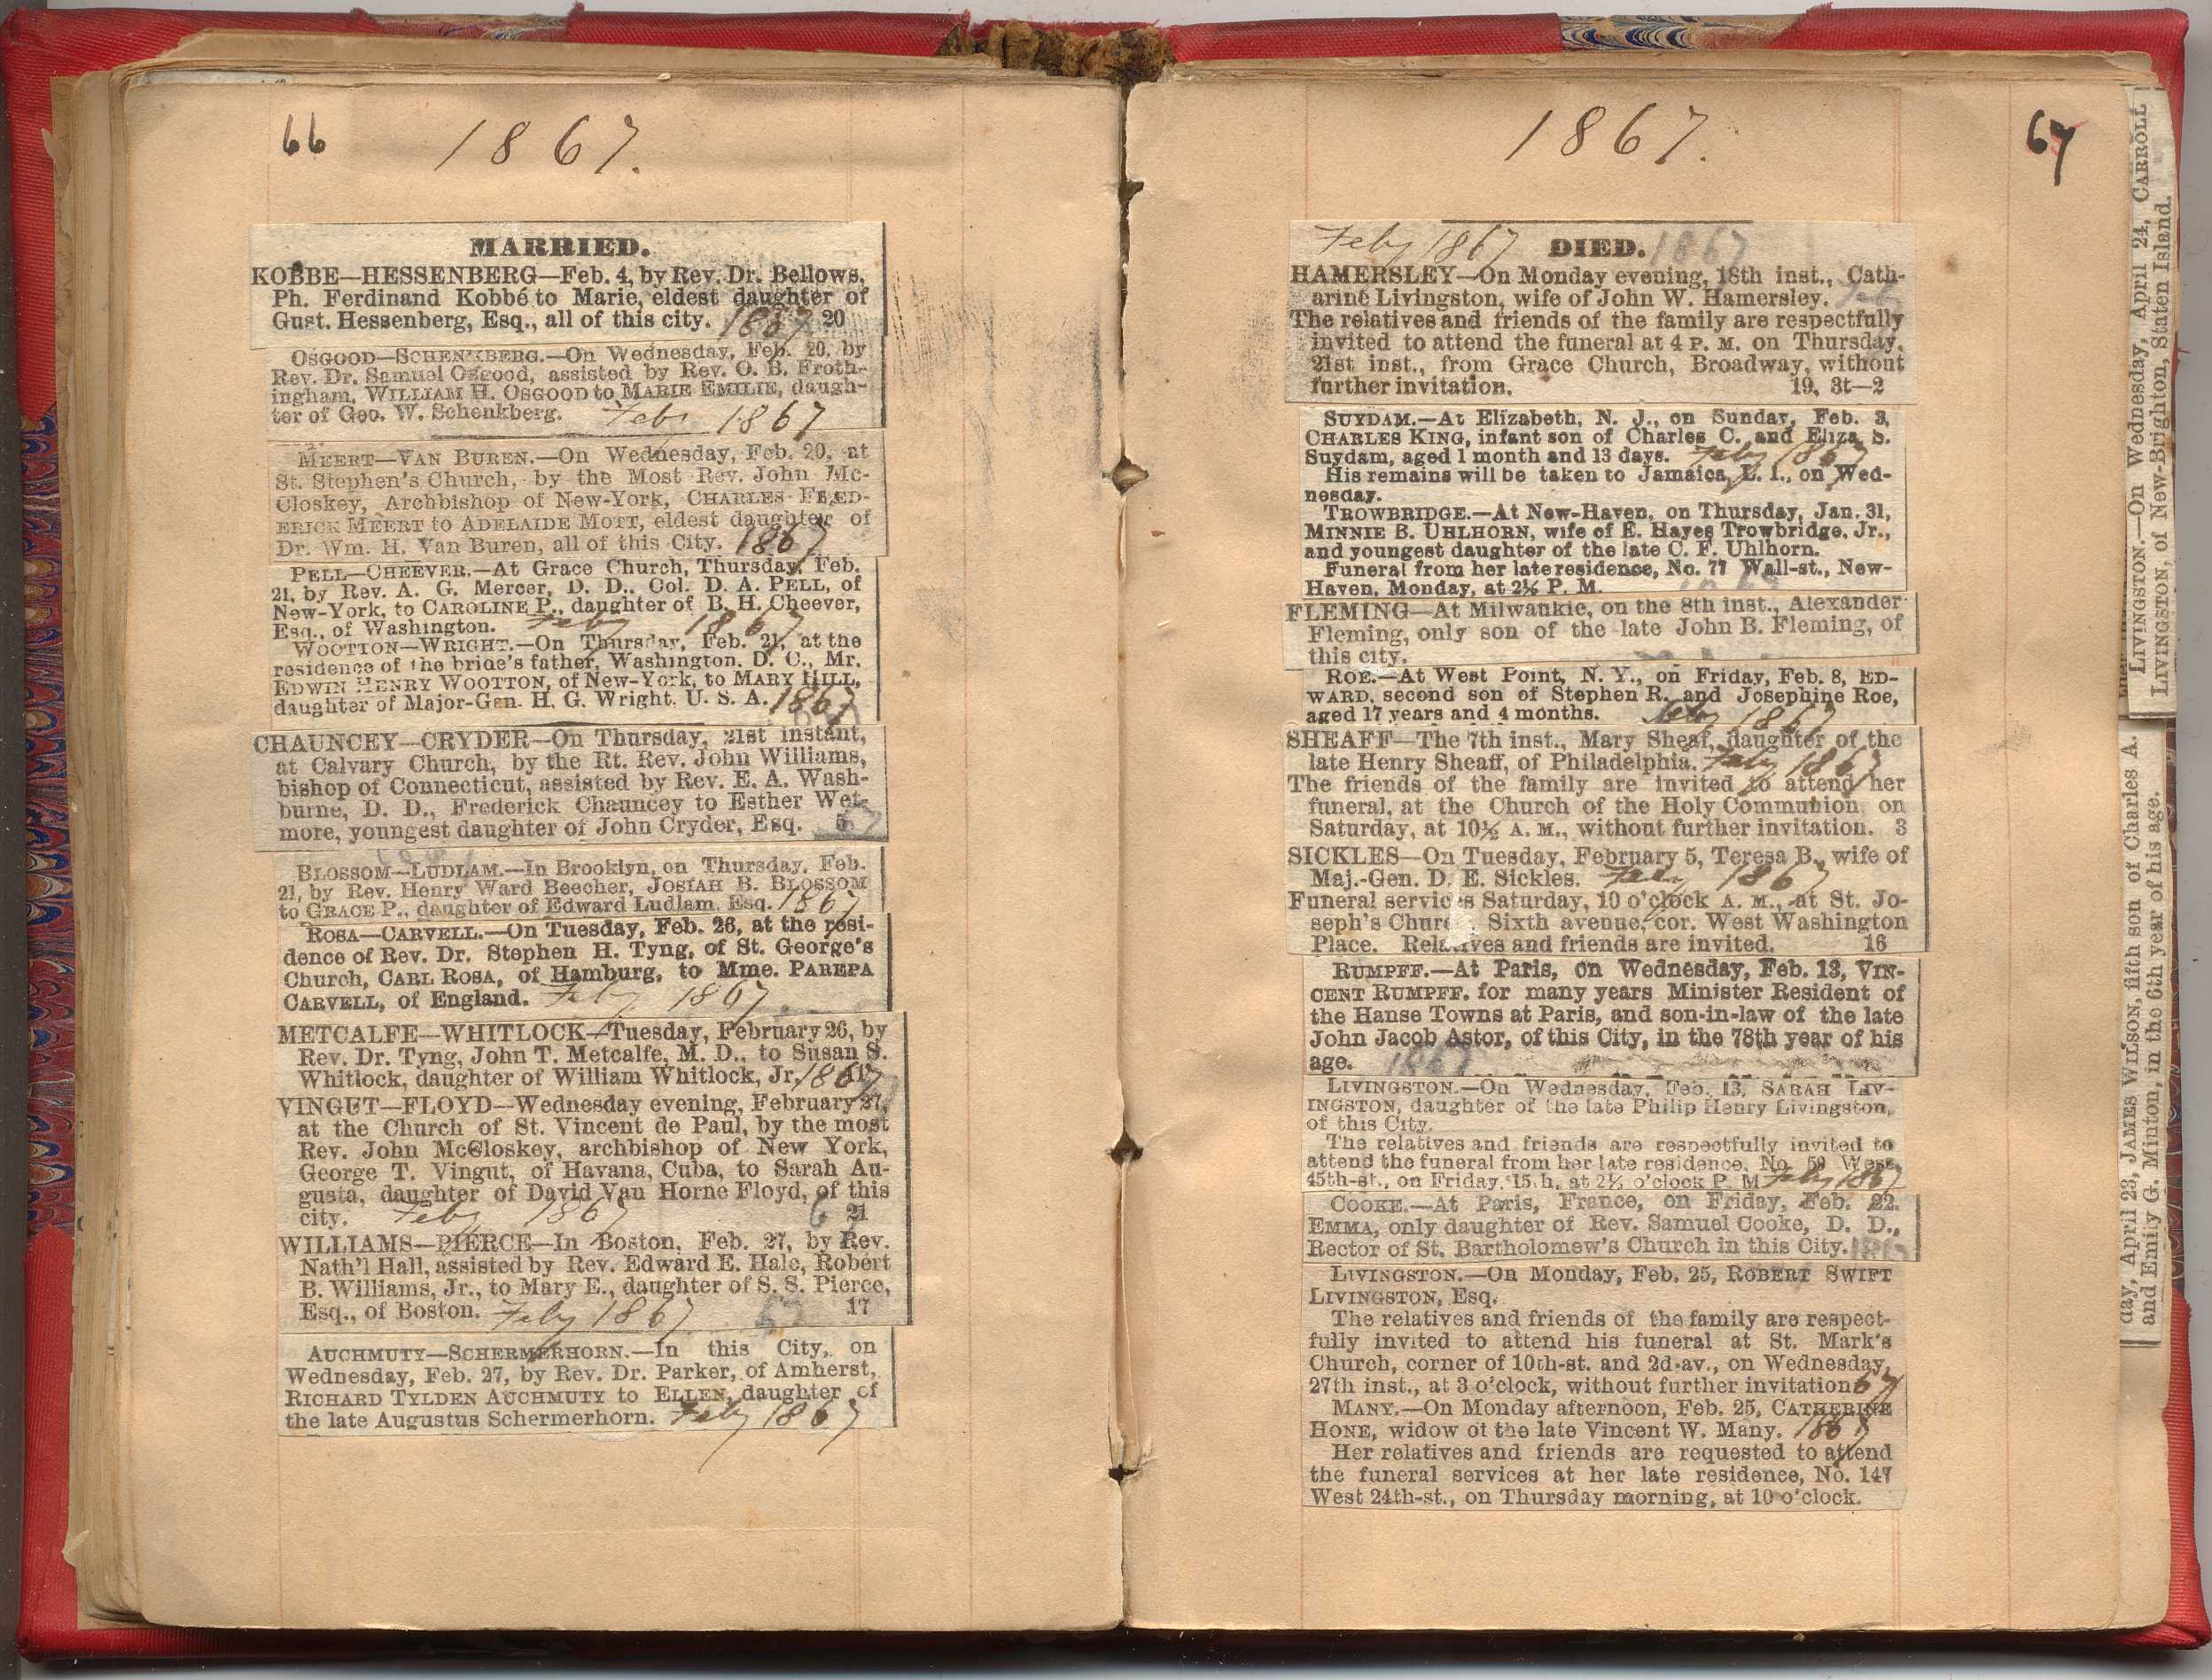 66
1867.
MARRIED.
KOBBE—HESSENBERG—Feb. 4, by Rev. Dr. Bellows,
Ph. Ferdinand Kobbé to Marie, eldest daughter of
Gust. Hessenberg, Esq., all of this city. 1867 20
OSGOOD—SCHENKBERG.—On Wednesday, Feb. 20, by
Rev. Dr. Samuel Osgood, assisted by Rev. O. B. Froth-
ingham, WILLIAM H. OSGOOD to MARIE EMILIE, daugh-
ter of Geo. W. Schenkberg. Feby 1867
MEERT—VAN BUREN.—On Wednesday, Feb. 20, at
St. Stephen's Church, by the Most Rev. John Mc-
Closkey, Archbishop of New-York, CHARLES FRED-
ERICK MEERT to ADELAIDE MOTT, eldest daughter of
Dr. Wm. H. Van Buren, all of this City. 1867
PELL—CHEEVER.—At Grace Church, Thursday, Feb.
21, by Rev. A. G. Mercer, D. D., Col. D. A. PELL, of
New-York, to CAROLINE P., daughter of B. H. Cheever,
Esq., of Washington. Feby 1867
WOOTTON—WRIGHT.—On Thursday, Feb. 21, at the
residence of the bride's father, Washington, D. C., Mr.
EDWIN HENRY WOOTTON, of New-York, to MARY HILL,
daughter of Major-Gen. H. G. Wright, U. S. A. 1867
CHAUNCEY—CRYDER—On Thursday, 21st instant,
at Calvary Church, by the Rt. Rev. John Williams,
bishop of Connecticut, assisted by Rev. E. A. Wash-
burne, D. D., Frederick Chauncey to Esther Wet-
more, youngest daughter of John Cryder, Esq. 5
BLOSSOM—LUDLAM.—In Brooklyn, on Thursday, Feb.
21, by Rev. Henry Ward Beecher, JOSIAH B. BLOSSOM
to GRACE P., daughter of Edward Ludlam, Esq. 1867
ROSA—CARVELL.—On Tuesday, Feb. 26, at the resi-
dence of Rev. Dr. Stephen H. Tyng, of St. George's
Church, CARL ROSA, of Hamburg, to Mme. PAREPA
CARVELL, of England. Feby 1867
METCALFE—WHITLOCK—Tuesday, February 26, by
Rev. Dr. Tyng, John T. Metcalfe, M. D., to Susan S.
Whitlock, daughter of William Whitlock, Jr. 1867
VINGUT—FLOYD—Wednesday evening, February 27,
at the Church of St. Vincent de Paul, by the most
Rev. John McCloskey, archbishop of New York,
George T. Vingut, of Havana, Cuba, to Sarah Au-
gusta, daughter of David Van Horne Floyd, of this
city. Feby 1867 21
WILLIAMS—PIERCE—In Boston, Feb. 27, by Rev.
Nath'l Hall, assisted by Rev. Edward E. Hale, Robert
B. Williams, Jr., to Mary E., daughter of S. S. Pierce,
Esq., of Boston. Feby 1867 17
AUCHMUTY—SCHERMERHORN.—In this City, on
Wednesday, Feb. 27, by Rev. Dr. Parker, of Amherst,
RICHARD TYLDEN AUCHMUTY to ELLEN, daughter of
the late Augustus Schermerhorn. Feby 1867
1867.
67
Feby 1867 DIED. 1867
HAMERSLEY—On Monday evening, 18th inst., Cath-
arine Livingston, wife of John W. Hamersley. Feby
The relatives and friends of the family are respectfully
invited to attend the funeral at 4 P. M. on Thursday,
21st inst., from Grace Church, Broadway, without
further invitation. 19, 3t—2
SUYDAM.—At Elizabeth, N. J., on Sunday, Feb. 3,
CHARLES KING, infant son of Charles C. and Eliza S.
Suydam, aged 1 month and 13 days. Feby 1867
His remains will be taken to Jamaica, L. I., on Wed-
nesday.
TROWBRIDGE.—At New-Haven, on Thursday, Jan. 31,
MINNIE B. UHLHORN, wife of E. Hayes Trowbridge, Jr.,
and youngest daughter of the late C. F. Uhlhorn.
Funeral from her late residence, No. 77 Wall-st., New-
Haven, Monday, at 2½ P. M.
FLEMING—At Milwaukie, on the 8th inst., Alexander
Fleming, only son of the late John B. Fleming, of
this city.
ROE.—At West Point, N. Y., on Friday, Feb. 8, ED-
WARD, second son of Stephen R. and Josephine Roe,
aged 17 years and 4 months. Feby 1867
SHEAFF—The 7th inst., Mary Sheaf, daughter of the
late Henry Sheaff, of Philadelphia. Feby 1867
The friends of the family are invited to attend her
funeral, at the Church of the Holy Communion, on
Saturday, at 10½ A. M., without further invitation. 3
SICKLES—On Tuesday, February 5, Teresa B., wife of
Maj.-Gen. D. E. Sickles. Feby 1867
Funeral services Saturday, 10 o'clock A. M., at St. Jo-
seph's Churc Sixth avenue, cor. West Washington
Place. Relatives and friends are invited. 16
RUMPFF.—At Paris, on Wednesday, Feb. 13, VIN-
CENT RUMPFF, for many years Minister Resident of
the Hanse Towns at Paris, and son-in-law of the late
John Jacob Astor, of this City, in the 78th year of his
age. 1867
LIVINGSTON.—On Wednesday, Feb. 13, SARAH LIV-
INGSTON, daughter of the late Philip Henry Livingston,
of this City.
The relatives and friends are respectfully invited to
attend the funeral from her late residence, No. 59 West
45th-st., on Friday, 15th, at 2½ o'clock P. M. Feby 1867
COOKE.—At Paris, France, on Friday, Feb. 22.
EMMA, only daughter of Rev. Samuel Cooke, D. D.,
Rector of St. Bartholomew's Church in this City. 1867
LIVINGSTON.—On Monday, Feb. 25, ROBERT SWIFT
LIVINGSTON, Esq.
The relatives and friends of the family are respect-
fully invited to attend his funeral at St. Mark's
Church, corner of 10th-st. and 2d-av., on Wednesday,
27th inst., at 3 o'clock, without further invitation 67
MANY.—On Monday afternoon, Feb. 25, CATHERINE
HONE, widow of the late Vincent W. Many. 1867
Her relatives and friends are requested to attend
the funeral services at her late residence, No. 147
West 24th-st., on Thursday morning, at 10 o'clock.
LIVINGSTON.—On Wednesday, April 24, CARROLL
LIVINGSTON, of New-Brighton, Staten Island.
day, April 23, JAMES WILSON, fifth son of Charles A.
and Emily G. Minton, in the 6th year of his age.